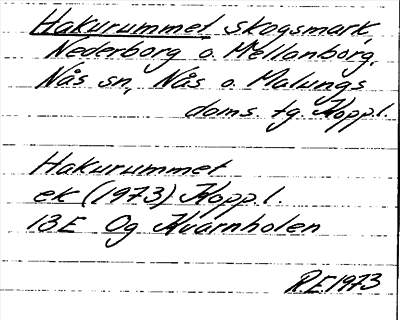 Hakurummet skogsmark,
Nederborg o. Mellanborg,
Nås sn, Nås o. Malungs
doms. tg. Kopp.l.
Hakurummet
ek (1973) Kopp.l.
13E Og Kvarnholen
R.E.1973